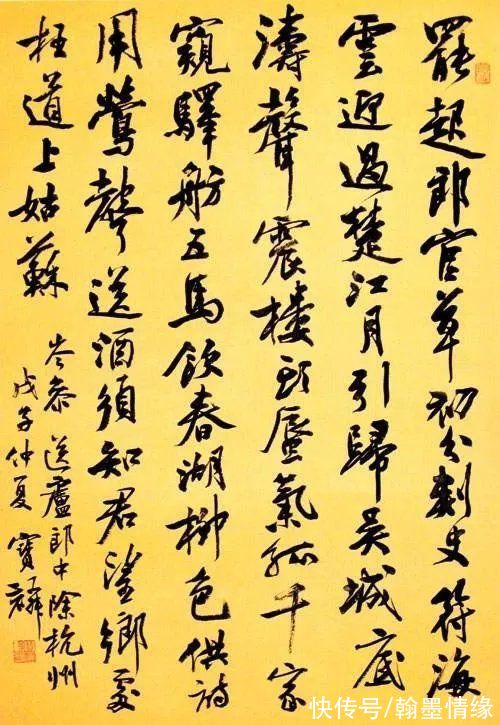 罷起郎官草初分刺史符海
雲迎過楚江月引歸吳城底
濤聲震樓頭蜃氣孤千家
窺驛舫五馬飲春湖柳色供詩
用鶯聲送酒須知君望鄉處
枉道上姑蘇
岑參 送廬郎中除杭州
戊子仲夏 寶麟
快传号/翰墨情缘